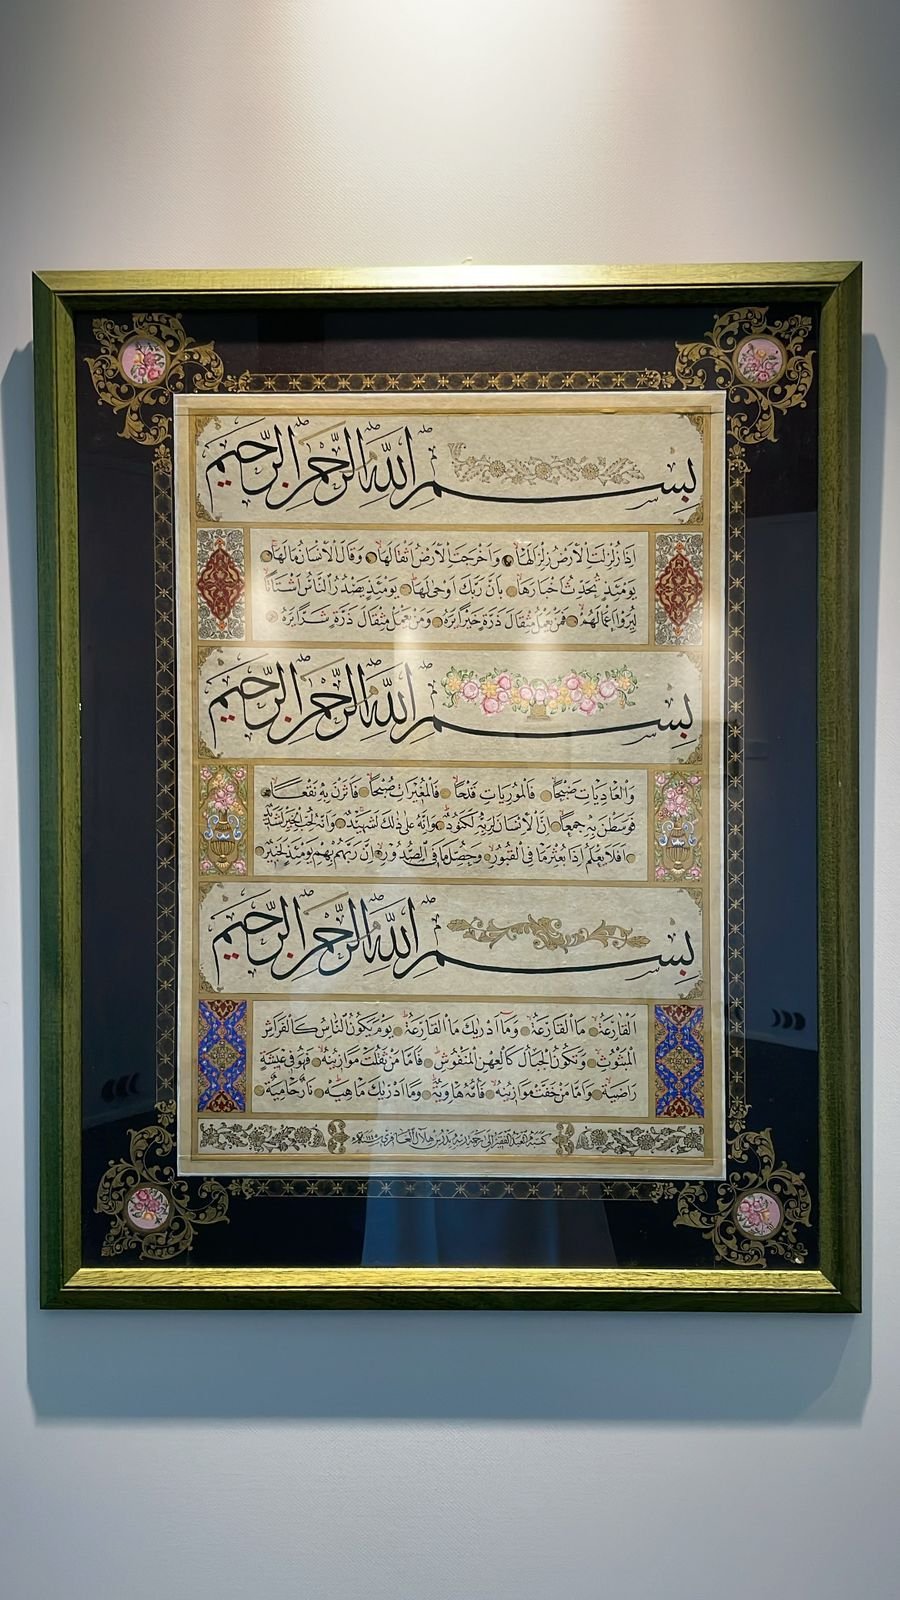 بِسْمِ اللّٰهِ الرَّحْمٰنِ الرَّحِيمِ
اِذَا زُلْزِلَتِ الْاَرْضُ زِلْزَالَهَا وَاَخْرَجَتِ الْاَرْضُ اَثْقَالَهَا وَقَالَ الْاِنْسَانُ مَالَهَا
يَوْمَئِذٍ تُحَدِّثُ اَخْبَارَهَا بِاَنَّ رَبَّكَ اَوْحٰى لَهَا يَوْمَئِذٍ يَصْدُرُ النَّاسُ اَشْتَاتًا
لِيُرَوْا اَعْمَالَهُمْ فَمَنْ يَعْمَلْ مِثْقَالَ ذَرَّةٍ خَيْرًا يَرَهُ وَمَنْ يَعْمَلْ مِثْقَالَ ذَرَّةٍ شَرًّا يَرَهُ
بِسْمِ اللّٰهِ الرَّحْمٰنِ الرَّحِيمِ
وَالْعَادِيَاتِ ضَبْحًا فَالْمُورِيَاتِ قَدْحًا فَالْمُغِيرَاتِ صُبْحًا فَاَثَرْنَ بِهِ نَقْعًا
فَوَسَطْنَ بِهِ جَمْعًا اِنَّ الْاِنْسَانَ لِرَبِّهِ لَكَنُودٌ وَاِنَّهُ عَلٰى ذٰلِكَ لَشَهِيدٌ وَاِنَّهُ لِحُبِّ الْخَيْرِ لَشَدِيدٌ
اَفَلَا يَعْلَمُ اِذَا بُعْثِرَ مَا فِى الْقُبُورِ وَحُصِّلَ مَا فِى الصُّدُورِ اِنَّ رَبَّهُمْ بِهِمْ يَوْمَئِذٍ لَخَبِيرٌ
بِسْمِ اللّٰهِ الرَّحْمٰنِ الرَّحِيمِ
اَلْقَارِعَةُ مَا الْقَارِعَةُ وَمَا اَدْرٰيكَ مَا الْقَارِعَةُ يَوْمَ يَكُونُ النَّاسُ كَالْفَرَاشِ
الْمَبْثُوثِ وَتَكُونُ الْجِبَالُ كَالْعِهْنِ الْمَنْفُوشِ فَاَمَّا مَنْ ثَقُلَتْ مَوَازِينُهُ فَهُوَ فِى عِيشَةٍ
رَاضِيَةٍ وَاَمَّا مَنْ خَفَّتْ مَوَازِينُهُ فَاُمُّهُ هَاوِيَةٌ وَمَا اَدْرٰيكَ مَا هِيَهْ نَارٌ حَامِيَةٌ
كتبه العبد الفقير الى رحمة ربه